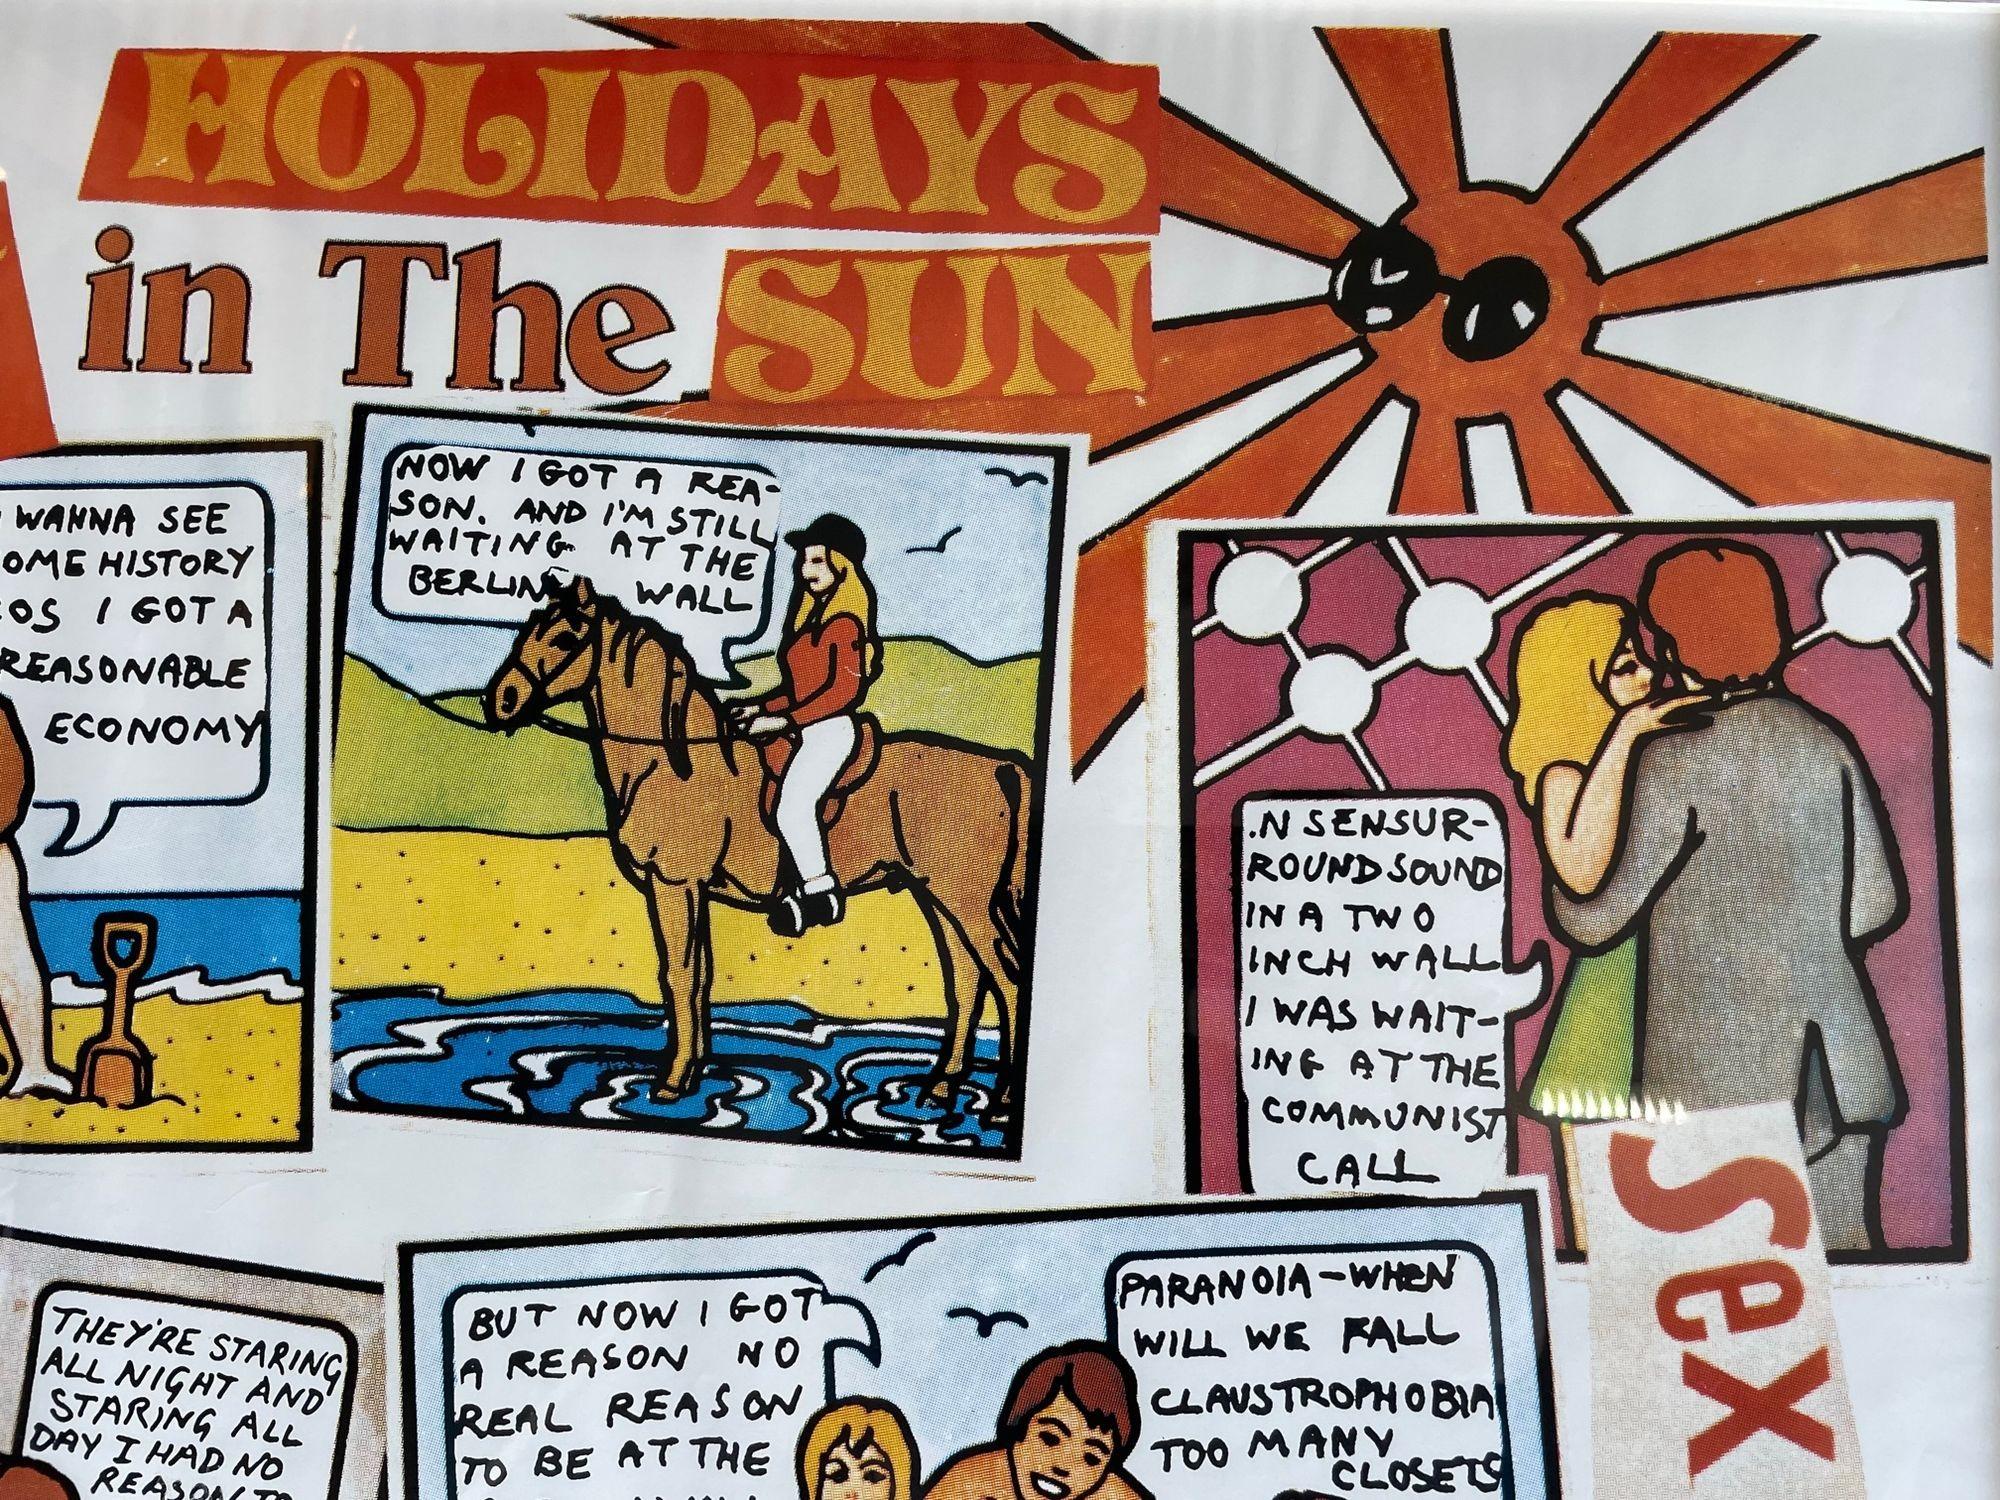 HOLIDAYS
in The SUN
WANNA SEE
OME HISTORY
OS I GOT A
REASONABLE
ECONOMY
NOW I GOT A REA-
SON. AND I'M STILL
WAITING AT THE
BERLIN WALL
.N SENSUR-
ROUND SOUND
IN A TWO
INCH WALL
I WAS WAIT-
ING AT THE
COMMUNIST
CALL
Sex
THEY'RE STARING
ALL NIGHT AND
STARING ALL
DAY I HAD NO
REASON TO
BUT NOW I GOT
A REASON NO
REAL REASON
TO BE AT THE
PARANOIA - WHEN
WILL WE FALL
CLAUSTROPHOBIA
TOO MANY
CLOSETS